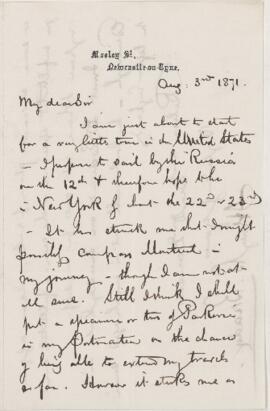 Mosley St.,
Newcastle-on-Tyne.
Aug. 3rd 1871.
My dear Sir
I am just about to start
for a very little tour in the United States
– I propose to sail by the "Russia"
on the 12th & therefore hope to be
in New York by about the 22nd or 23rd
– It has struck me that I might
possibly compass Montreal in
my journey – though I am not at
all sure. Still I think I shall
put a specimen or two of
in my Portmanteau on the chance
of being able to extend my travels
so far. However it strikes me as